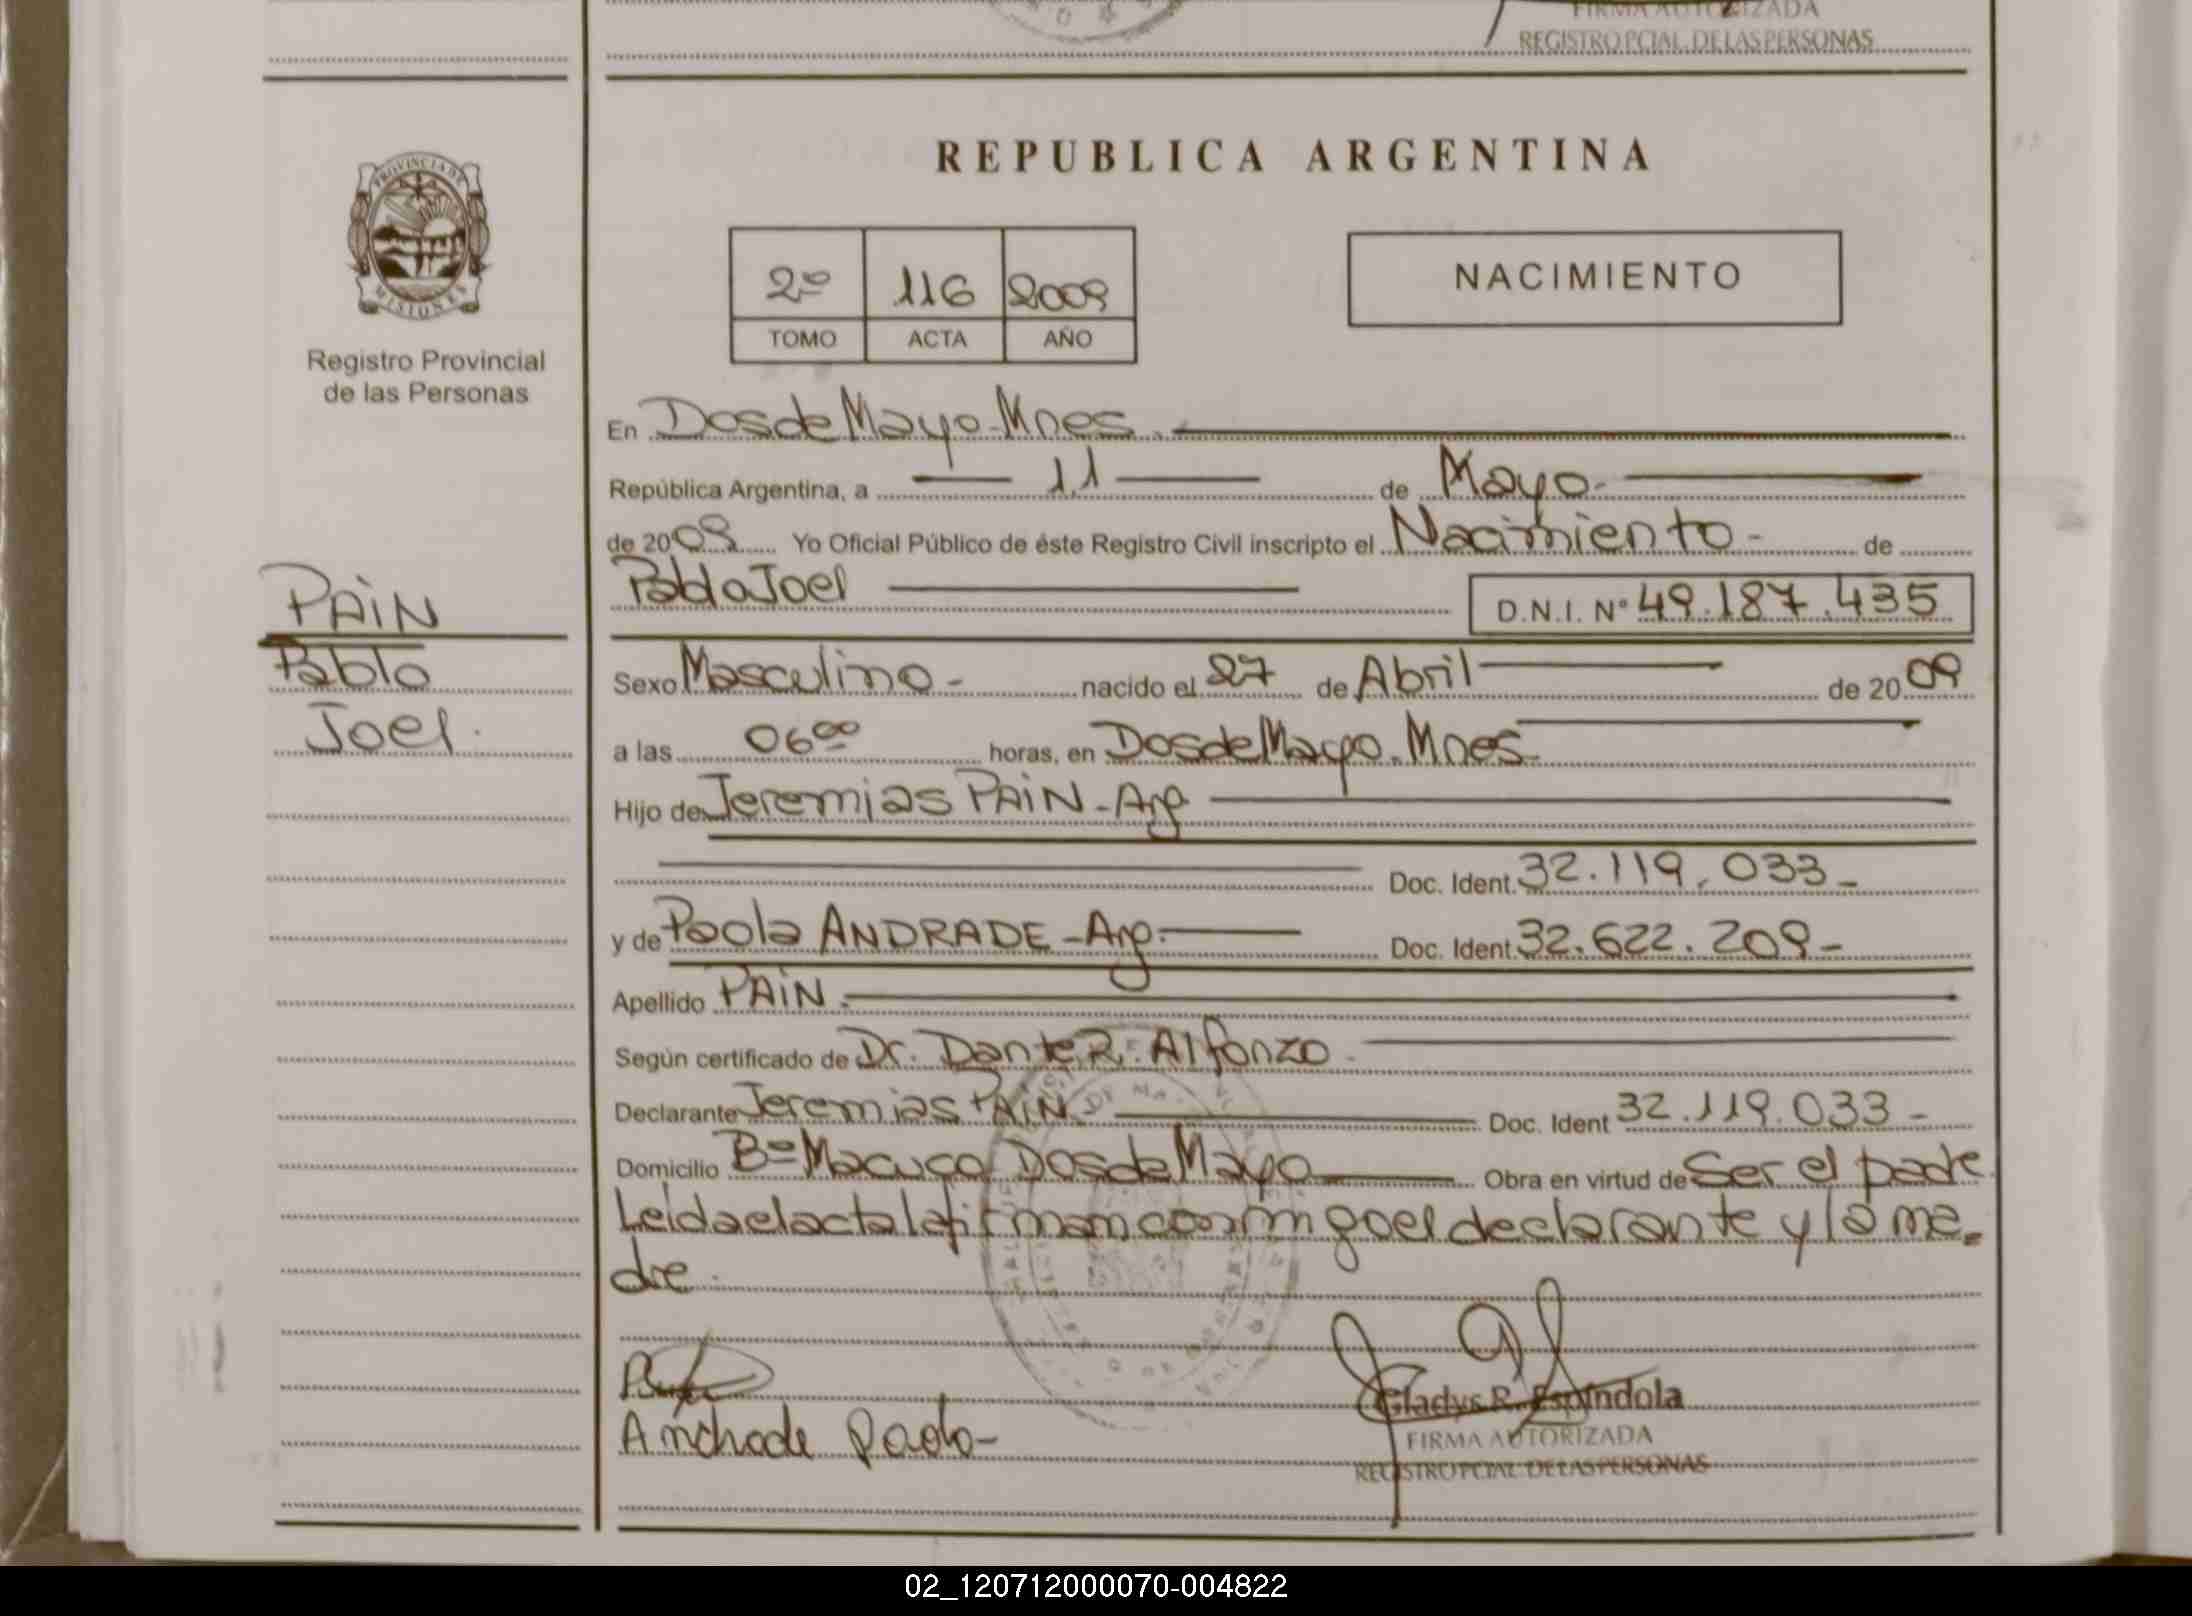 FIRMA AUTORIZADA
REGISTRO PCIAL. DE LAS PERSONAS
PROVINCIA DE
MISIONES
Registro Provincial
de las Personas
PAIN
Pablo
Joel.
REPUBLICA ARGENTINA
2º 116 2009
TOMO ACTA AÑO
NACIMIENTO
En Dos de Mayo-Mnes.
República Argentina, a 11 de Mayo.
de 2009 Yo Oficial Público de éste Registro Civil inscripto el Nacimiento - de
Pablo Joel D.N.I. Nº 49.187.435
Sexo Masculino - nacido el 27 de Abril de 2009
a las 06⁰⁰ horas, en Dos de Mayo. Mnes.
Hijo de Jeremias PAIN - Arg
Doc. Ident. 32.119.033 -
y de Paola ANDRADE - Arg. Doc. Ident. 32.622.209 -
Apellido PAIN.
Según certificado de Dr. Dante R. Alfonzo
Declarante Jeremias PAIN Doc. Ident 32.119.033 -
Domicilio Bº Macuca Dos de Mayo Obra en virtud de Ser el padre
Leida el acta la firman conmigo el declarante y la ma-
dre.
Andrade Paola-
Gladys R. Espíndola
FIRMA AUTORIZADA
REGISTRO PCIAL. DE LAS PERSONAS
02_120712000070-004822